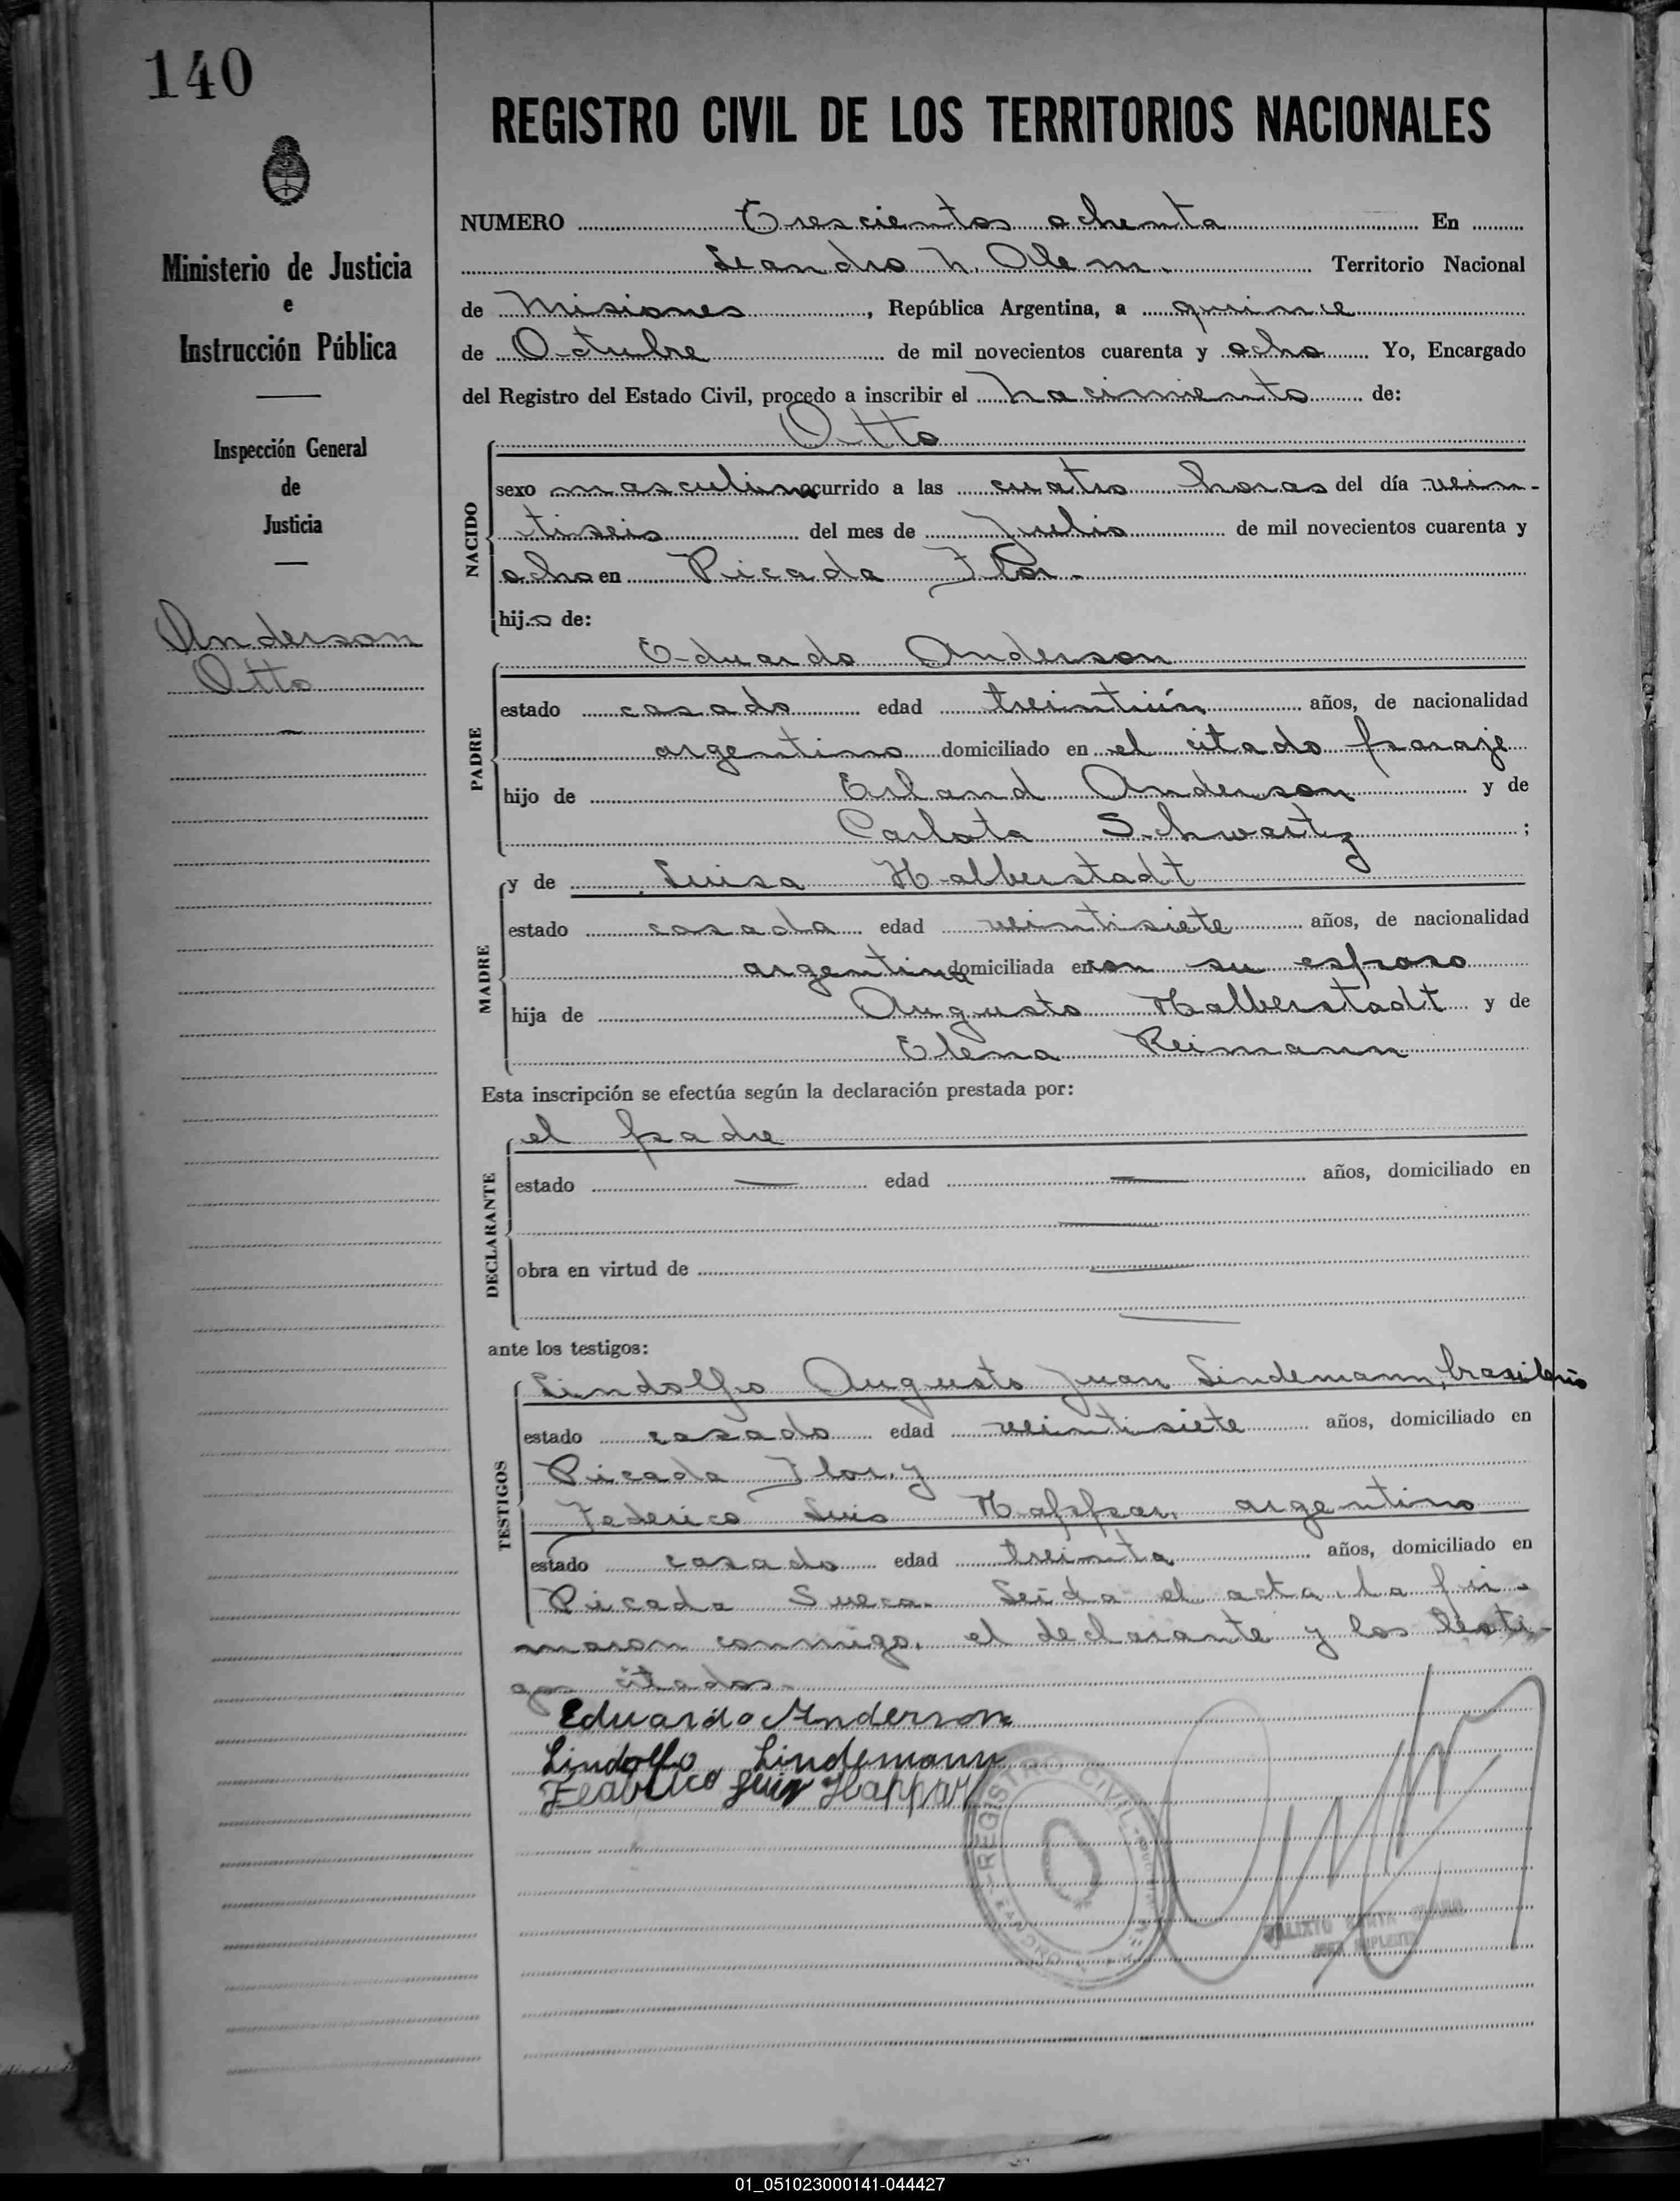 140
REGISTRO CIVIL DE LOS TERRITORIOS NACIONALES
Ministerio de Justicia
e
Instrucción Pública
Inspección General
de
Justicia
Anderson
Otto
NUMERO Trescientos ochenta En
Leandro N. Alem. Territorio Nacional
de Misiones, República Argentina, a quince
de Octubre de mil novecientos cuarenta y ocho Yo, Encargado
del Registro del Estado Civil, procedo a inscribir el nacimiento de:
NACIDO
Otto
sexo masculino ocurrido a las cuatro horas del día vein-
tiseis del mes de Julio de mil novecientos cuarenta y
ocho en Picada Flor.
hijo de:
PADRE
Eduardo Anderson
estado casado edad treintiún años, de nacionalidad
argentino domiciliado en el citado paraje
hijo de Erland Anderson y de
Carlota Schwartz;
MADRE
y de Luisa Halberstadt
estado casada edad veintisiete años, de nacionalidad
argentina domiciliada en con su esposo
hija de Augusto Halberstadt y de
Elena Reimann
Esta inscripción se efectúa según la declaración prestada por:
DECLARANTE
el padre
estado — edad — años, domiciliado en
—
obra en virtud de —
—
ante los testigos:
TESTIGOS
Lindolfo Augusto Juan Lindemann, brasileño
estado casado edad veintisiete años, domiciliado en
Picada Flor. y
Federico Luis Happar, argentino
estado casado edad treinta años, domiciliado en
Picada Sueca. Leída el acta, la fir-
maron conmigo, el declarante y los testi-
gos citados.
Eduardo Anderson
Lindolfo Lindemann
Federico Luis Happar
REGISTRO CIVIL
JUEZ SUPLENTE
01_051023000141-044427